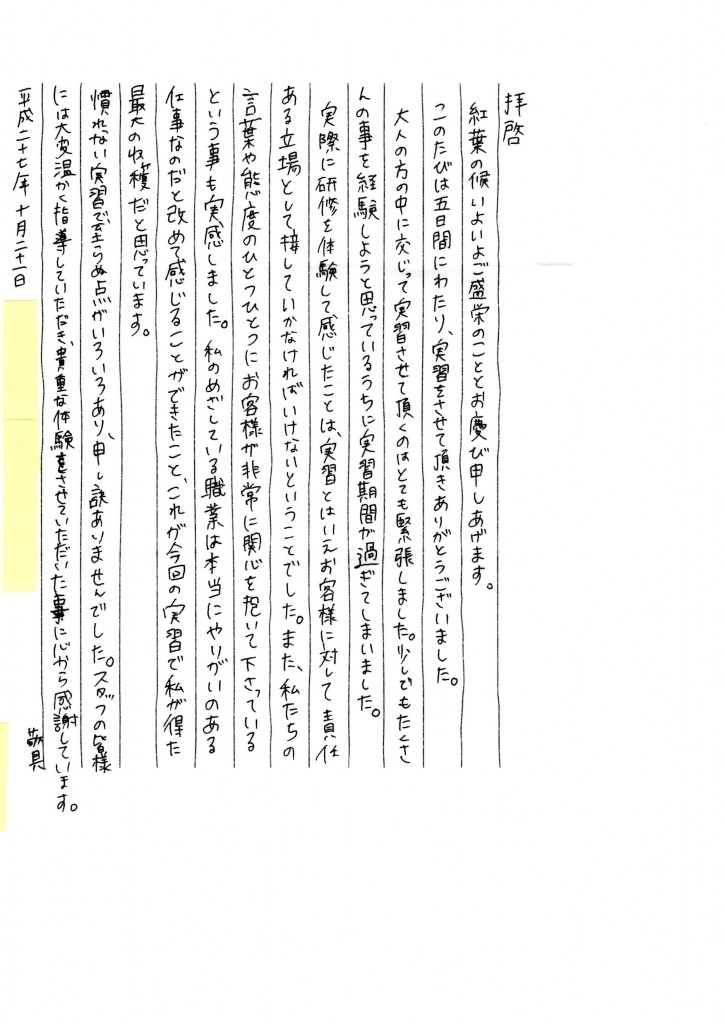 拝啓
紅葉の候いよいよご盛栄のこととお慶び申しあげます。
このたびは五日間にわたり、実習をさせて頂きありがとうございました。
大人の方の中に交じって実習させて頂くのはとても緊張しました。少しでもたくさ
んの事を経験しようと思っているうちに実習期間が過ぎてしまいました。
実際に研修を体験して感じたことは、実習とはいえお客様に対して責任
ある立場として接していかなければいけないということでした。また、私たちの
言葉や態度のひとつひとつにお客様が非常に関心を抱いて下さっている
という事も実感しました。私のめざしている職業は本当にやりがいのある
仕事なのだと改めて感じることができたこと、これが今回の実習で私が得た
最大の収穫だと思っています。
慣れない実習で至らぬ点がいろいろあり、申し訳ありませんでした。スタッフの皆様
には大変温かく指導していただき、貴重な体験をさせていただいた事に心から感謝しています。
敬具
平成二十七年 十月二十一日